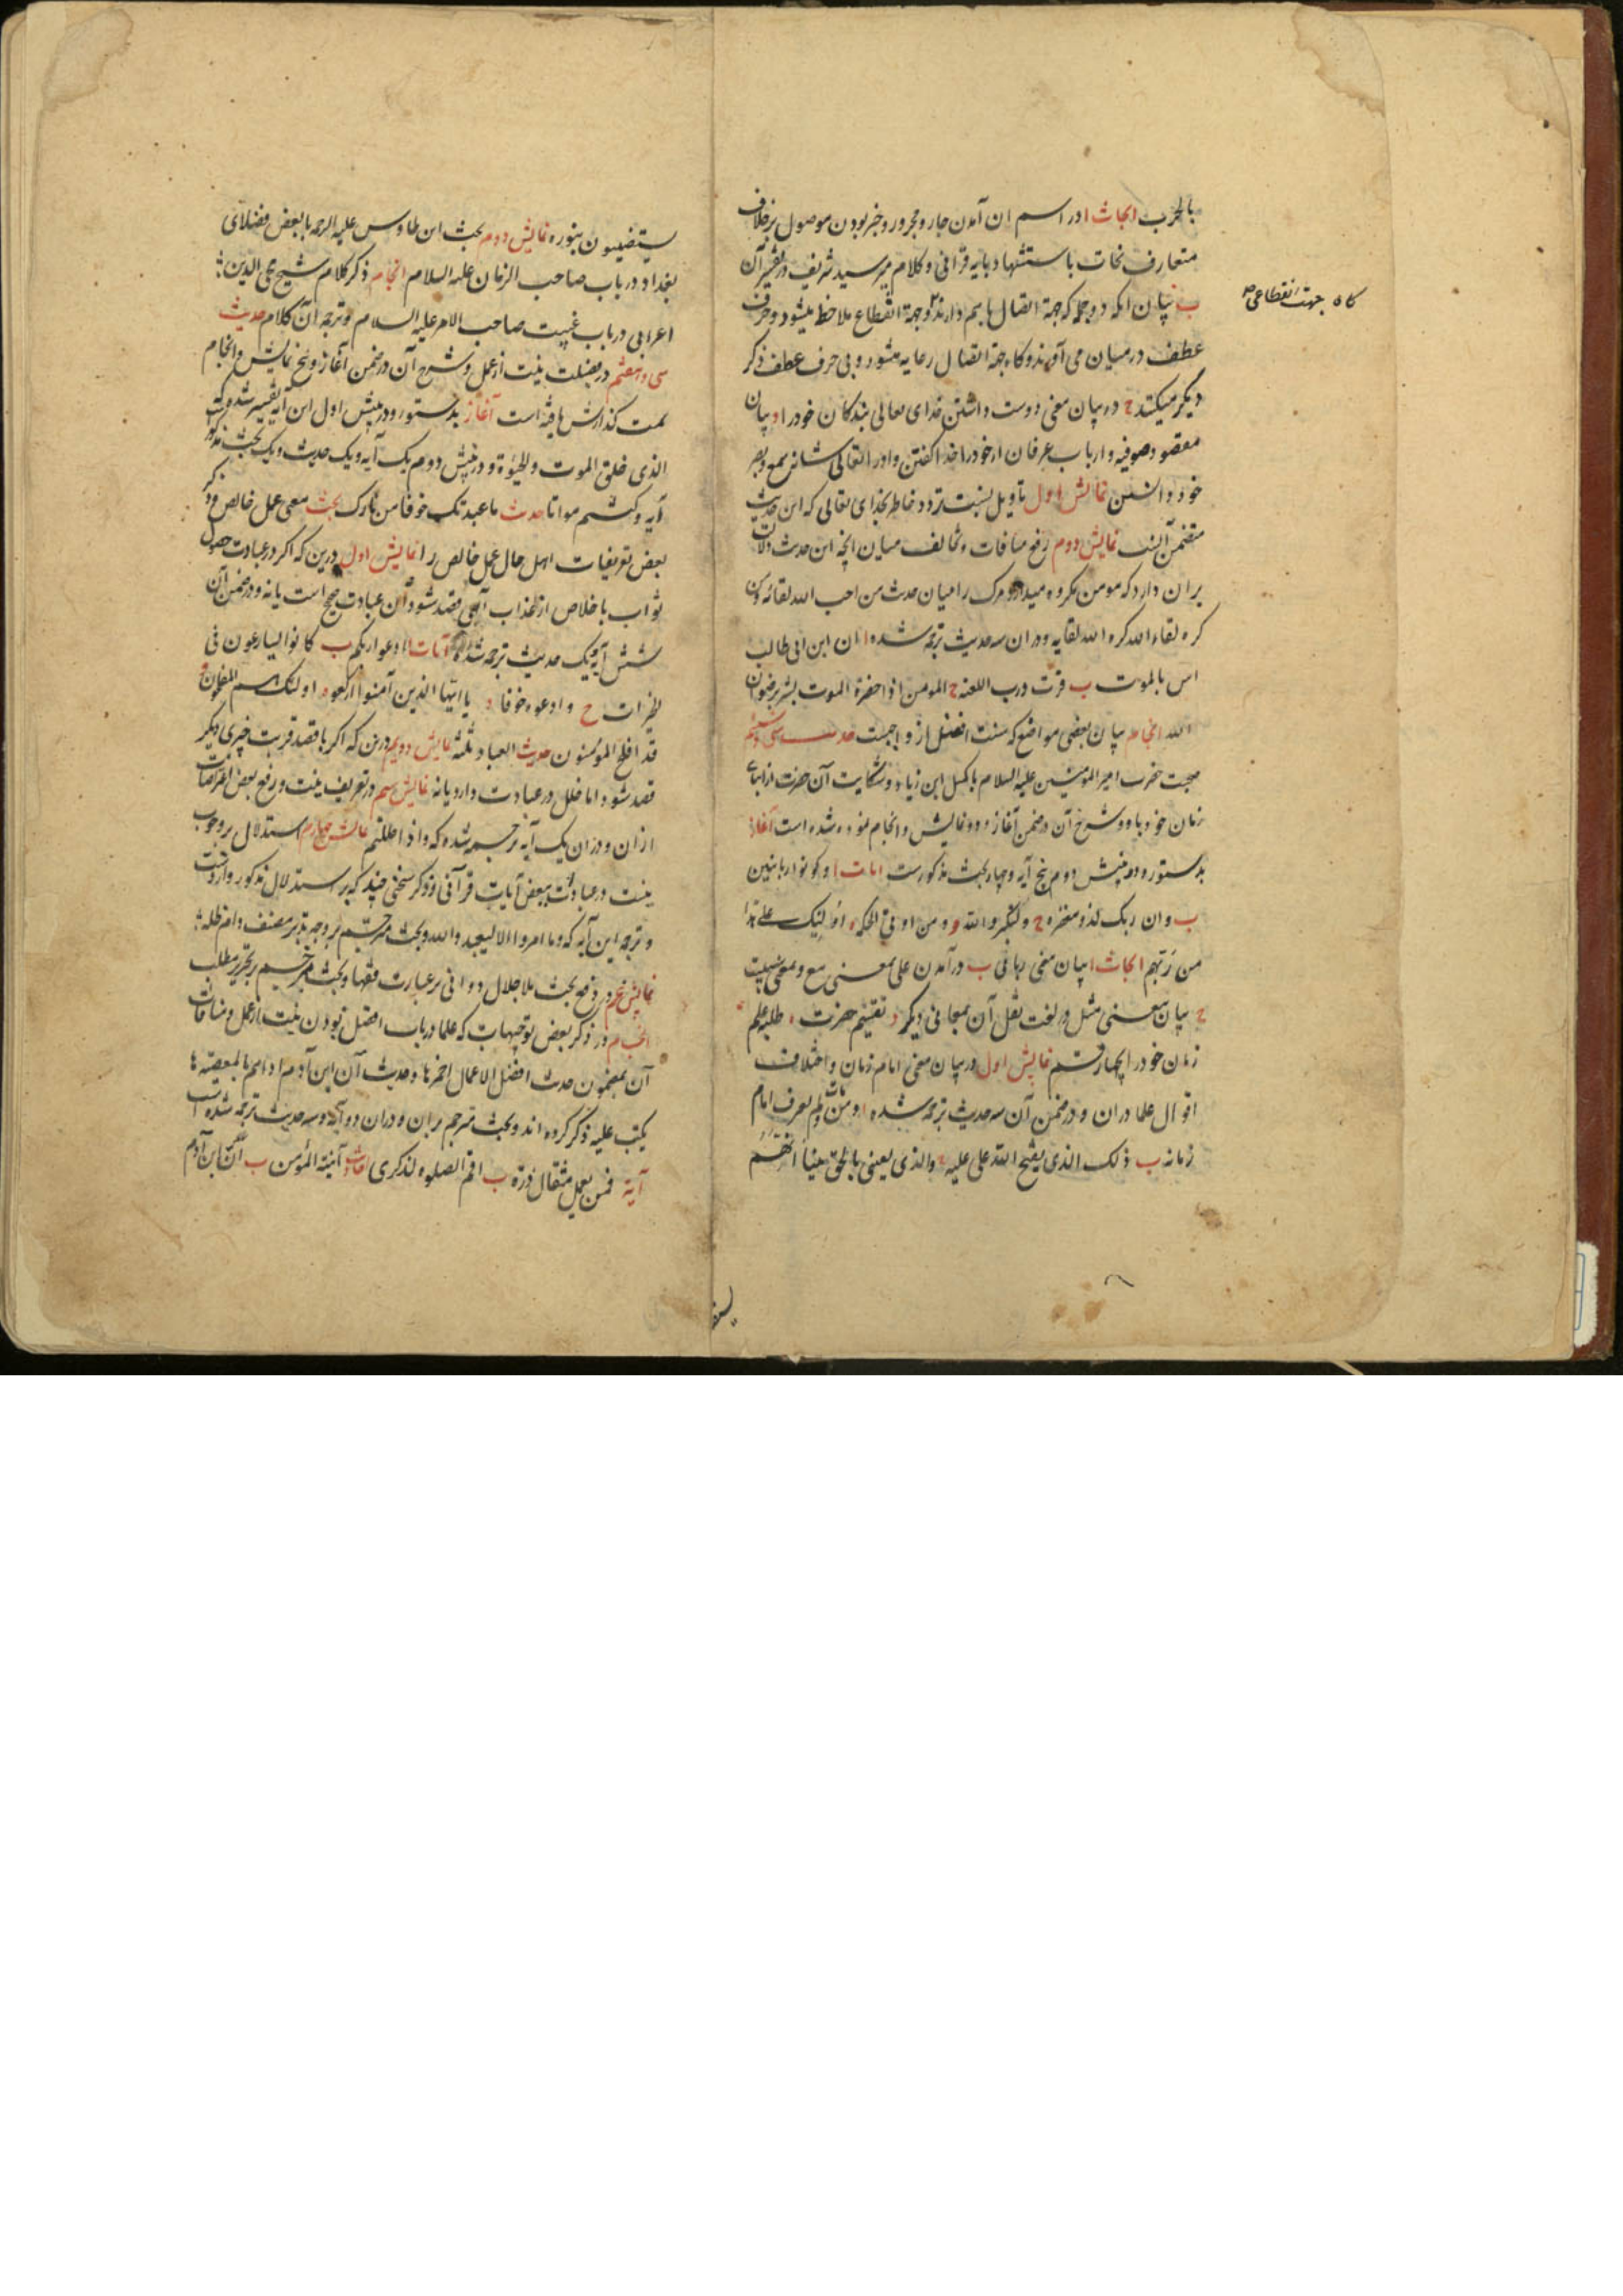 بالحرب ابحاث ا در اسم ان آمدن جار و مجرور و خبر بودن موصول بر خلاف
متعارف نحات با استشهاد بایه قرآنی و کلام میر سید شریف در تفسیر آن
ب بیان انکه دو جمله که جهة اتصال باهم دارند کاه جهة انقطاع ملاحظ میشود و حرف
کاه جهت انقطاعی
عطف در میان می آورند و کاه جهة اتصال رعایه میشود و بی حرف عطف ذکر
دیگر میکنند ج در بیان معنی دوست داشتن خدای تعالی بندکان خود را د بیان
مقصود صوفیه و ارباب عرفان از خود را خدا کفتن و او تعالی شانه سمع و بصر
خود دانستن نمایش اول تاویل نسبت تردد خاطر بخدای تعالی که این حدیث
متضمن آنست نمایش دوم رفع منافات و تخالف میان انچه این حدیث دلالت
بر ان دارد که مومن مکروه میدارد مرک را میان حدیث من احب الله لقائه و من
کره لقاء الله کره الله لقایه و در ان سه حدیث ترجمه شده ا ان ابن ابی طالب
انس بالموت ب فزت و رب الکعبه ج المومن اذا حضرة الموت بشر برضوان
الله انجام بیان بعضی مواضع که سنت افضل از واجبست حدیث سی و ششم
صحبت حضرت امیر المومنین علیه السلام با کمیل ابن زیاد و شکایت آن حضرت از ابنای
زمان خود با او و شرح آن در ضمن آغاز و دو نمایش و انجام نموده شده است آغاز
بدستور و در پنیش دوم پنج آیه و چهار بحث مذکورست ایات ا و کونوا ربانیین
ب و ان ربک لذو مغفره ج و لتکبروا الله د و من اوتی الحکمه ه اولئک علی هدا
من ربهم ابحاث ا بیان معنی ربانی ب در آمدن علی بمعنی مع و بمعنی
ج بیان معنی مثل در لغت و نقل آن بمعانی دیگر د تقسیم حضرت طلبه علم
زمان خود را بچهار قسم نمایش اول در بیان معنی امام زمان و اختلاف
اقوال علما در ان و در ضمن آن سه حدیث ترجمه شده ا من مات و لم یعرف امام
زمانه ب ذلک الذی یفتح الله علی علیه ج والذی بعثنی بالحق نبیا انهم
یستضیئون بنوره نمایش دوم بحث ابن طاوس علیه الرحمه با بعض فضلای
بغداد در باب صاحب الزمان علیه السلام انجام ذکر کلام شیخ محی الدین
اعرابی در باب غیبت صاحب الامر علیه السلام و ترجمه آن کلام حدیث
سی و هفتم در فضیلت نیت از عمل و شرح آن در ضمن آغاز و پنج نمایش و انجام
سمت کذارش یافته است آغاز بدستور و در پنیش اول این آیه تفسیر شده که
الذی خلق الموت و الحیوة و در پنیش دوم یک آیه و یک حدیث و یک بحث مذکور
آیه و کنتم مواتا حدیث ما عبدتک خوفا من نارک بحث معنی عمل خالص و ذکر
بعض تعریفات اهل حال عمل خالص را نمایش اول درین که اکر در عبادت حصول
ثواب با خلاص از عذاب آلهی قصد شود آن عبادت صحیح است یا نه و در ضمن آن
شش آیه و یک حدیث ترجمه شده آیات ا ادعوا ربکم ب کانوا یسارعون فی
الخیرات ج و ادعوه خوفا د یا ایها الذین آمنوا ارکعوا ه اولئک هم المفلحون و
قد افلح المؤمنون حدیث العباد ثلثه نمایش دویم درین که اکر با قصد قربت چیزی دیگر
قصد شود ایا خلل در عبادت دارد یا نه نمایش سیم در تعریف نیت و رفع بعض اعتراضات
از ان و در ان یک آیه ترجمه شده که و اذ اظلتم نمایش چهارم استدلال بر وجوب
نیت در عبادت ببعض آیات قرآنی و ذکر سخنی چند که بر استدلال مذکور وارد است
و ترجمه این آیه که و ما امروا الا لیعبدوا الله و بحث مترجم بر وجه تدبر مصنف دام ظله
نمایش پنجم در دفع بحث ملا جلال دوانی بر عبارت فقها و بحث مترجم بر تحریر مطلب
انجام در ذکر بعض توجیهات که علما در باب افضل بودن نیت از عمل و منافات
آن بمضمون حدیث افضل الاعمال احمزها و حدیث آن ابن آدم اذا هم بالمعصیه لا
یکتب علیه ذکر کرده اند و بحث مترجم بر ان و در ان دو آیه و سه حدیث ترجمه شده است
آیة فمن یعمل مثقال ذرة ب اقم الصلوه لذکری احادیث ا نیة المؤمن ب ان ابن آدم